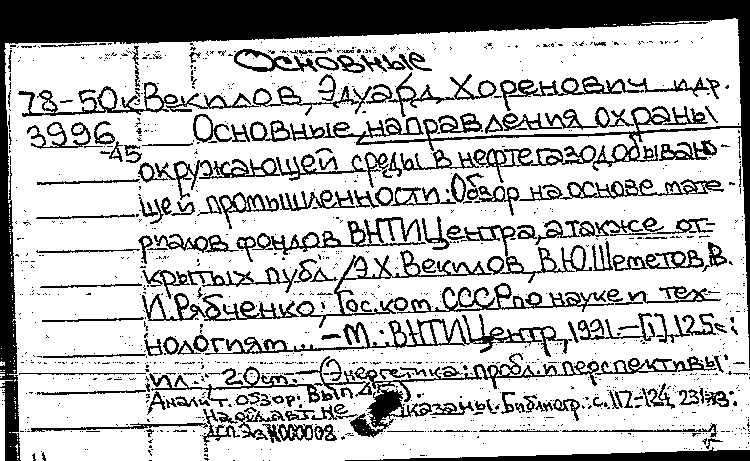 Основные
78-50к Векилов, Эдуард Хоренович и др.
3996 Основные направления охраны
-45 окружающей среды в нефтегазодобываю-
щей промышленности: Обзор на основе мате-
риалов фондов ВНТИЦентра, а также от-
крытых публ. / Э.Х. Векилов, В.Ю. Шеметов, В.
И. Рябченко; Гос. ком. СССР по науке и тех-
нологиям... – М.: ВНТИЦентр, 1991. – [1], 125 с.:
ил.; 20 см. – (Энергетика: пробл. и перспективы:
Аналит. обзор; Вып.
На обл. авт. не указаны. Библиогр.: с. 117-124,
ДСП Экз N000008.